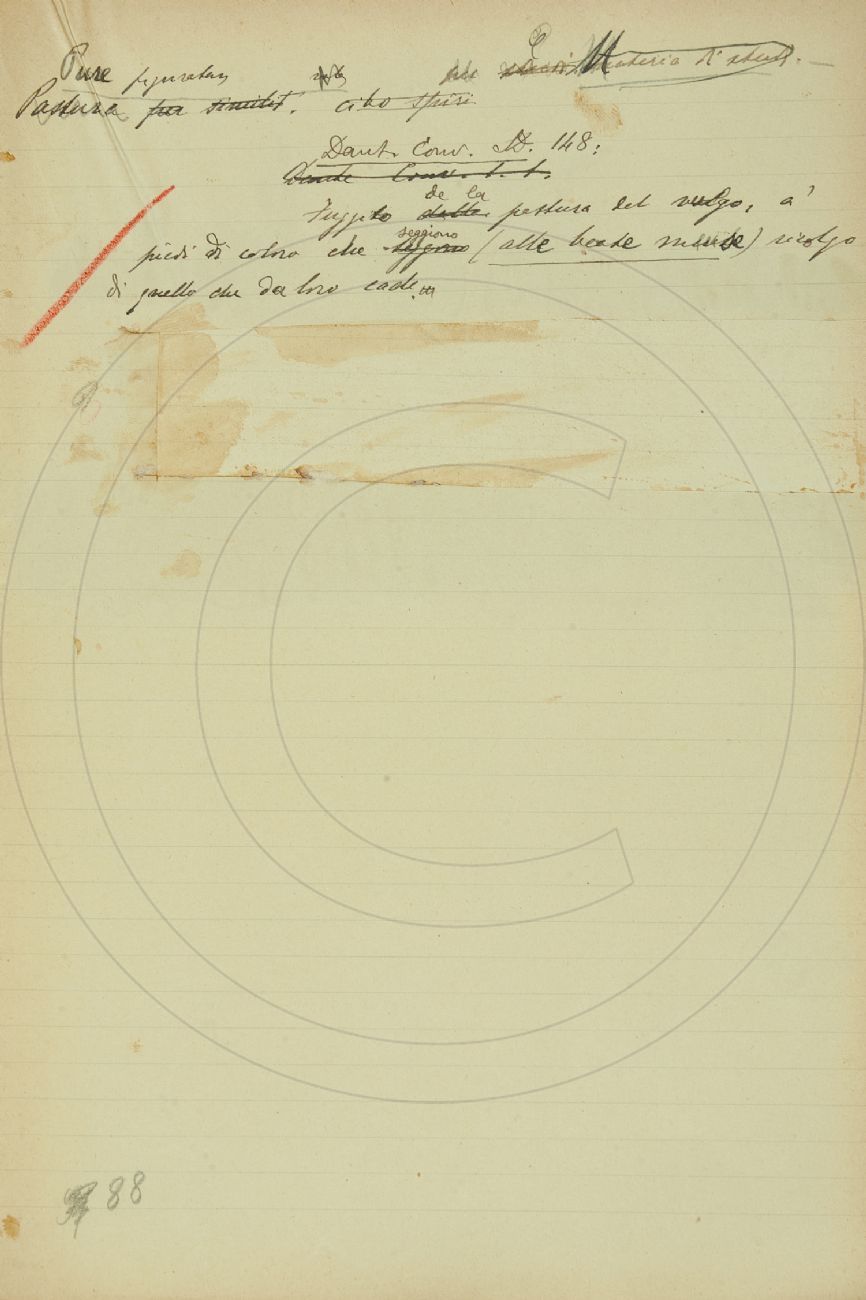 Pure figuratam Materia di studi. —
Pastura per similit. cibo spiri
Dant. Conv. 148:
Dante Conv. I. 1.
de la
Fuggito della pastura del vulgo, a'
seggiono
piedi di coloro che seggono (alle beate mense) ricolgo
di quello che da loro cade
88